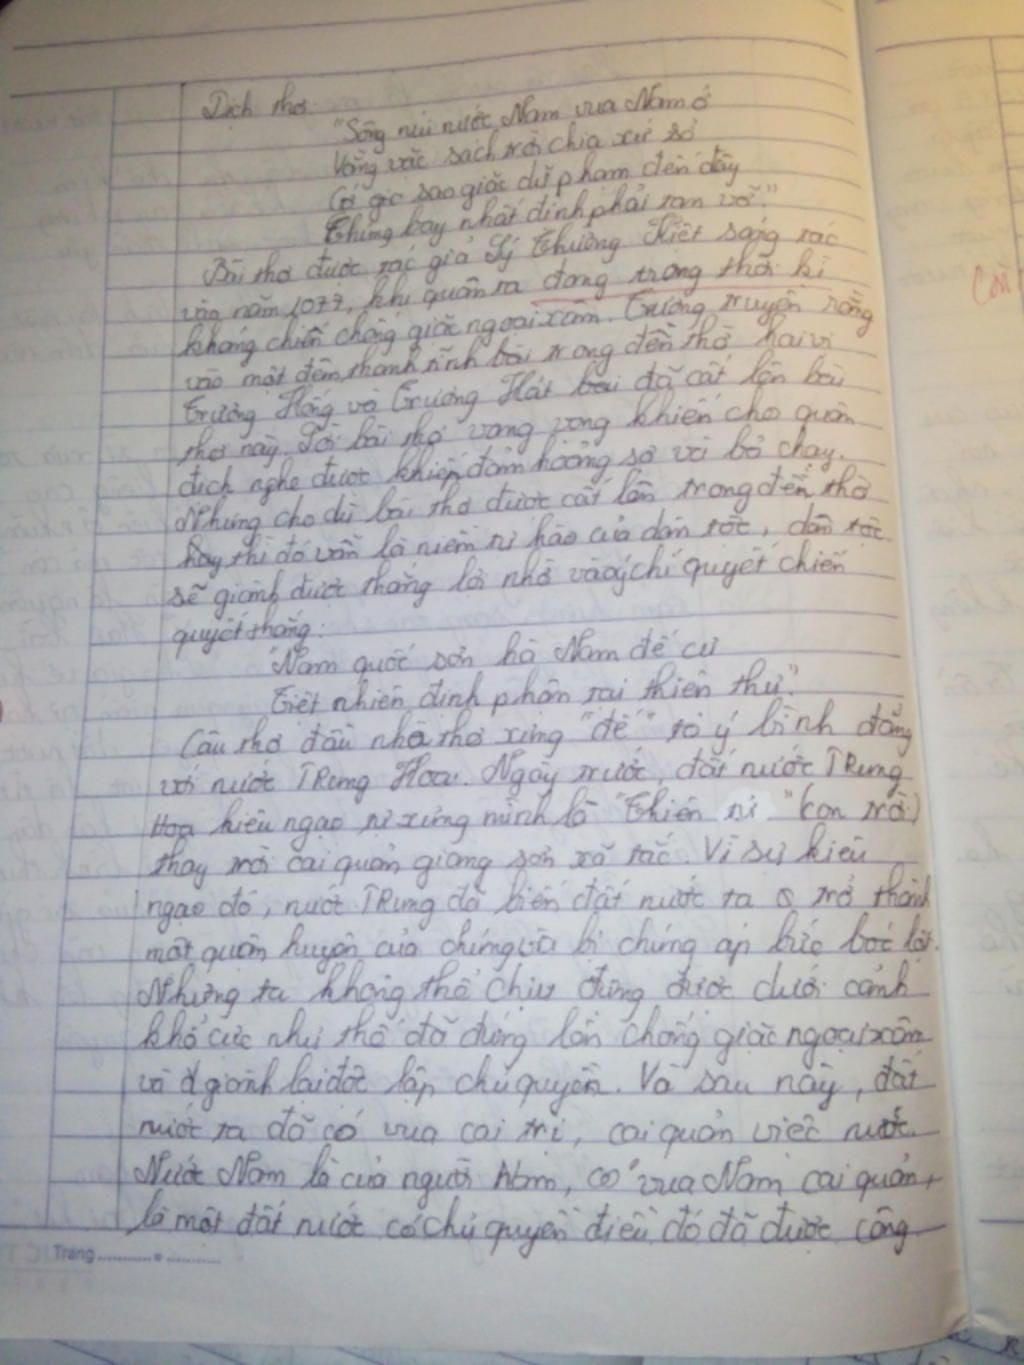 Dịch thơ:
"Sông núi nước Nam vua Nam ở
Vằng vặc sách trời chia xứ sở
Cớ gì sao giặc dữ phạm đến đây
Chúng bay nhất định phải tan vỡ."
Bài thơ được tác giả Lý Thường Kiệt sáng tác
vào năm 1077, khi quân ta đang trong thời kì
kháng chiến chống giặc ngoại xâm. Tương truyền rằng
vào một đêm thanh tĩnh bài trong đền thờ hai vị
Trương Hống và Trương Hát bài đã cất lên bài
thơ này. Lời bài thơ vang vọng khiến cho quân
địch nghe được khiếp đảm hoảng sợ vội bỏ chạy.
Nhưng cho dù bài thơ được cất lên trong đền thờ
hay thì đó vẫn là niềm tự hào của dân tộc, dân tộc
sẽ giành được thắng lợi nhờ vào ý chí quyết chiến
quyết thắng:
"Nam quốc sơn hà Nam đế cư
Tiệt nhiên định phận tại thiên thư."
Câu thơ đầu nhà thơ xưng "đế" tỏ ý bình đẳng
với nước TRung Hoa. Ngày trước, đất nước TRung
Hoa kiêu ngạo tự xưng mình là "Thiên tử" (con trời)
thay trời cai quản giang sơn xã tắc. Vì sự kiêu
ngạo đó, nước TRung đã biến đất nước ta trở thành
một quận huyện của chúng và bị chúng áp bức bóc lột.
Nhưng ta không thể chịu đựng được dưới cảnh
khổ cực như thế đã đứng lên chống giặc ngoại xâm
và giành lại độc lập chủ quyền. Và sau này, đất
nước ta đã có vua cai trị, cai quản việc nước.
Nước Nam là của người Nam, có vua Nam cai quản,
là một đất nước có chủ quyền điều đó đã được công
Trang